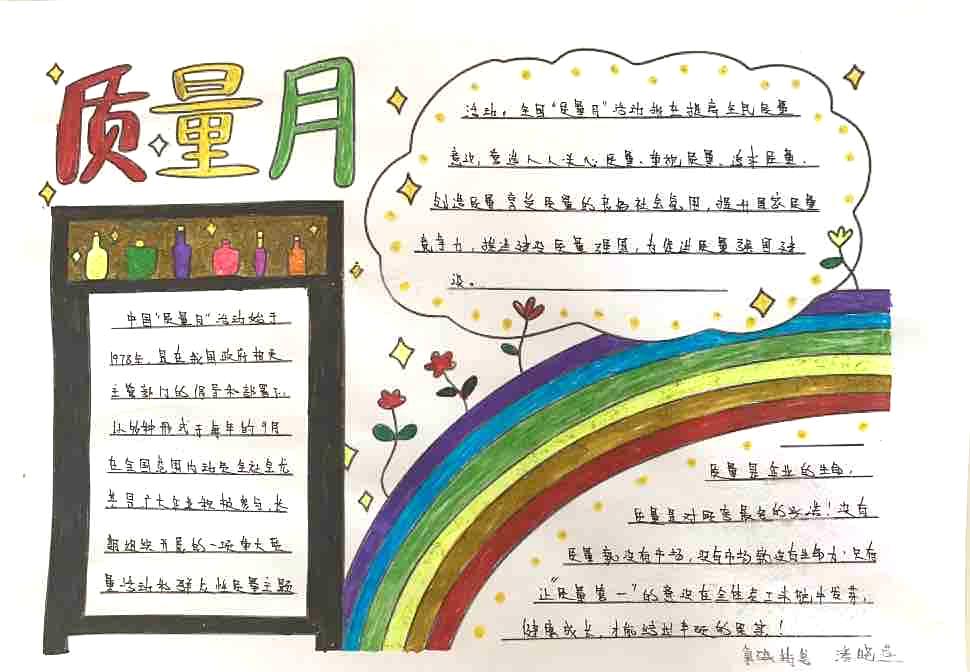 质量月
中国"质量月"活动始于
1978年,是在我国政府相关
主管部门的倡导和部署下,
以多种形式于每年的9月
在全国范围内动员全社会尤
其是广大企业积极参与,长
期组织开展的一项重大质
量活动和群众性质量主题
活动。全国"质量月"活动旨在提高全民质量
意识,营造人人关心质量、重视质量、追求质量、
创造质量享受质量的良好社会氛围,提升国家质量
竞争力,推进建设质量强国,为促进质量强国建
设。
质量是企业的生命,
质量是对顾客最好的承诺!没有
质量就没有市场,没有市场就没有生命力,只有
让"质量第一"的意识在全体员工土壤中发芽,
健康成长,才能结出丰硕的果实!